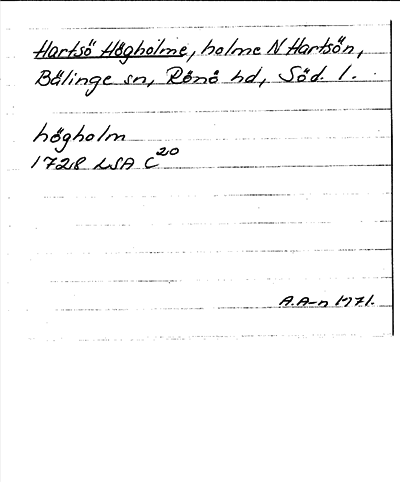 Hartsö Högholme, holme N Hartsön,
Bälinge sn, Rönö hd, Söd. l.
högholm
1728 LSA C20
A.A-n 1971.